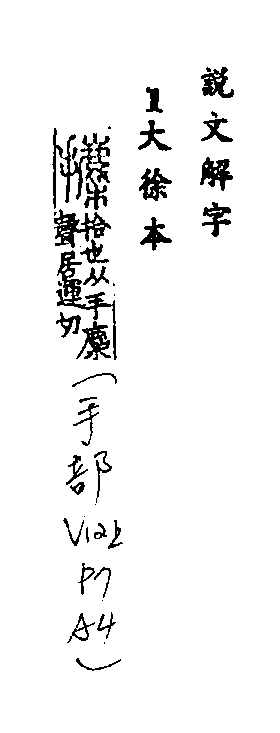 説文解字
1大徐本
拾也从手麇
聲居運切
(手部
V12上
P7
A4)